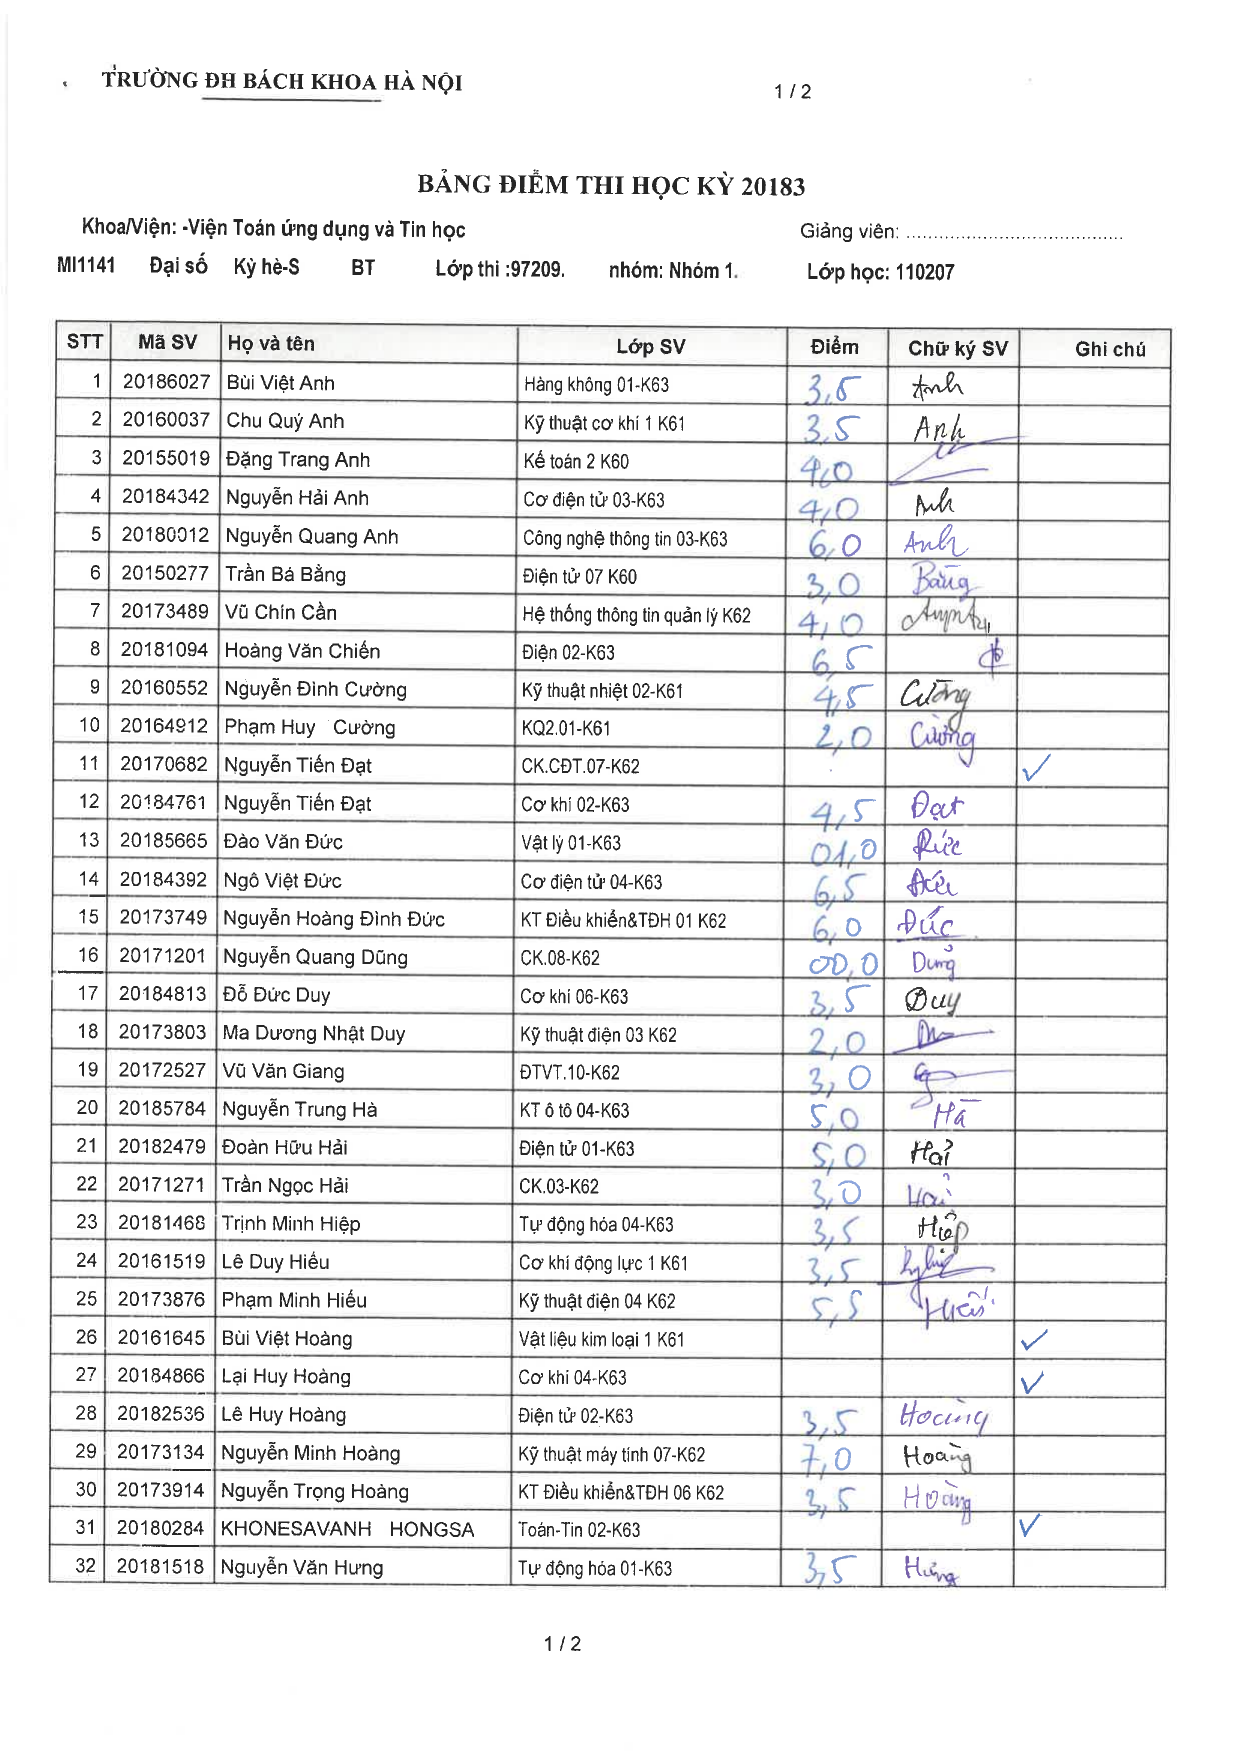 TRƯỜNG ĐH BÁCH KHOA HÀ NỘI
1 / 2
BẢNG ĐIỂM THI HỌC KỲ 20183
Khoa/Viện: -Viện Toán ứng dụng và Tin học Giảng viên: .......................................
MI1141 Đại số Kỳ hè-S BT Lớp thi :97209. nhóm: Nhóm 1. Lớp học: 110207
STT Mã SV Họ và tên Lớp SV Điểm Chữ ký SV Ghi chú
1 20186027 Bùi Việt Anh Hàng không 01-K63 3,5 Anh
2 20160037 Chu Quý Anh Kỹ thuật cơ khí 1 K61 3,5 Anh
3 20155019 Đặng Trang Anh Kế toán 2 K60 4,0
4 20184342 Nguyễn Hải Anh Cơ điện tử 03-K63 4,0 Anh
5 20180012 Nguyễn Quang Anh Công nghệ thông tin 03-K63 6,0 Anh
6 20150277 Trần Bá Bằng Điện tử 07 K60 3,0 Bằng
7 20173489 Vũ Chín Cần Hệ thống thông tin quản lý K62 4,0
8 20181094 Hoàng Văn Chiến Điện 02-K63 6,5
9 20160552 Nguyễn Đình Cường Kỹ thuật nhiệt 02-K61 4,5 Cường
10 20164912 Phạm Huy Cường KQ2.01-K61 2,0 Cường
11 20170682 Nguyễn Tiến Đạt CK.CĐT.07-K62 ✓
12 20184761 Nguyễn Tiến Đạt Cơ khí 02-K63 4,5 Đạt
13 20185665 Đào Văn Đức Vật lý 01-K63 01,0 Đức
14 20184392 Ngô Việt Đức Cơ điện tử 04-K63 6,5 Đức
15 20173749 Nguyễn Hoàng Đình Đức KT Điều khiển&TĐH 01 K62 6,0 Đức
16 20171201 Nguyễn Quang Dũng CK.08-K62 00,0 Dũng
17 20184813 Đỗ Đức Duy Cơ khí 06-K63 3,5 Duy
18 20173803 Ma Dương Nhật Duy Kỹ thuật điện 03 K62 2,0
19 20172527 Vũ Văn Giang ĐTVT.10-K62 3,0
20 20185784 Nguyễn Trung Hà KT ô tô 04-K63 5,0 Hà
21 20182479 Đoàn Hữu Hải Điện tử 01-K63 5,0 Hải
22 20171271 Trần Ngọc Hải CK.03-K62 3,0 Hải
23 20181468 Trịnh Minh Hiệp Tự động hóa 04-K63 3,5 Hiệp
24 20161519 Lê Duy Hiếu Cơ khí động lực 1 K61 3,5
25 20173876 Phạm Minh Hiếu Kỹ thuật điện 04 K62 5,5 Hiếu
26 20161645 Bùi Việt Hoàng Vật liệu kim loại 1 K61 ✓
27 20184866 Lại Huy Hoàng Cơ khí 04-K63 ✓
28 20182536 Lê Huy Hoàng Điện tử 02-K63 3,5 Hoàng
29 20173134 Nguyễn Minh Hoàng Kỹ thuật máy tính 07-K62 7,0 Hoàng
30 20173914 Nguyễn Trọng Hoàng KT Điều khiển&TĐH 06 K62 3,5 Hoàng
31 20180284 KHONESAVANH HONGSA Toán-Tin 02-K63 ✓
32 20181518 Nguyễn Văn Hưng Tự động hóa 01-K63 3,5 Hưng
1 / 2